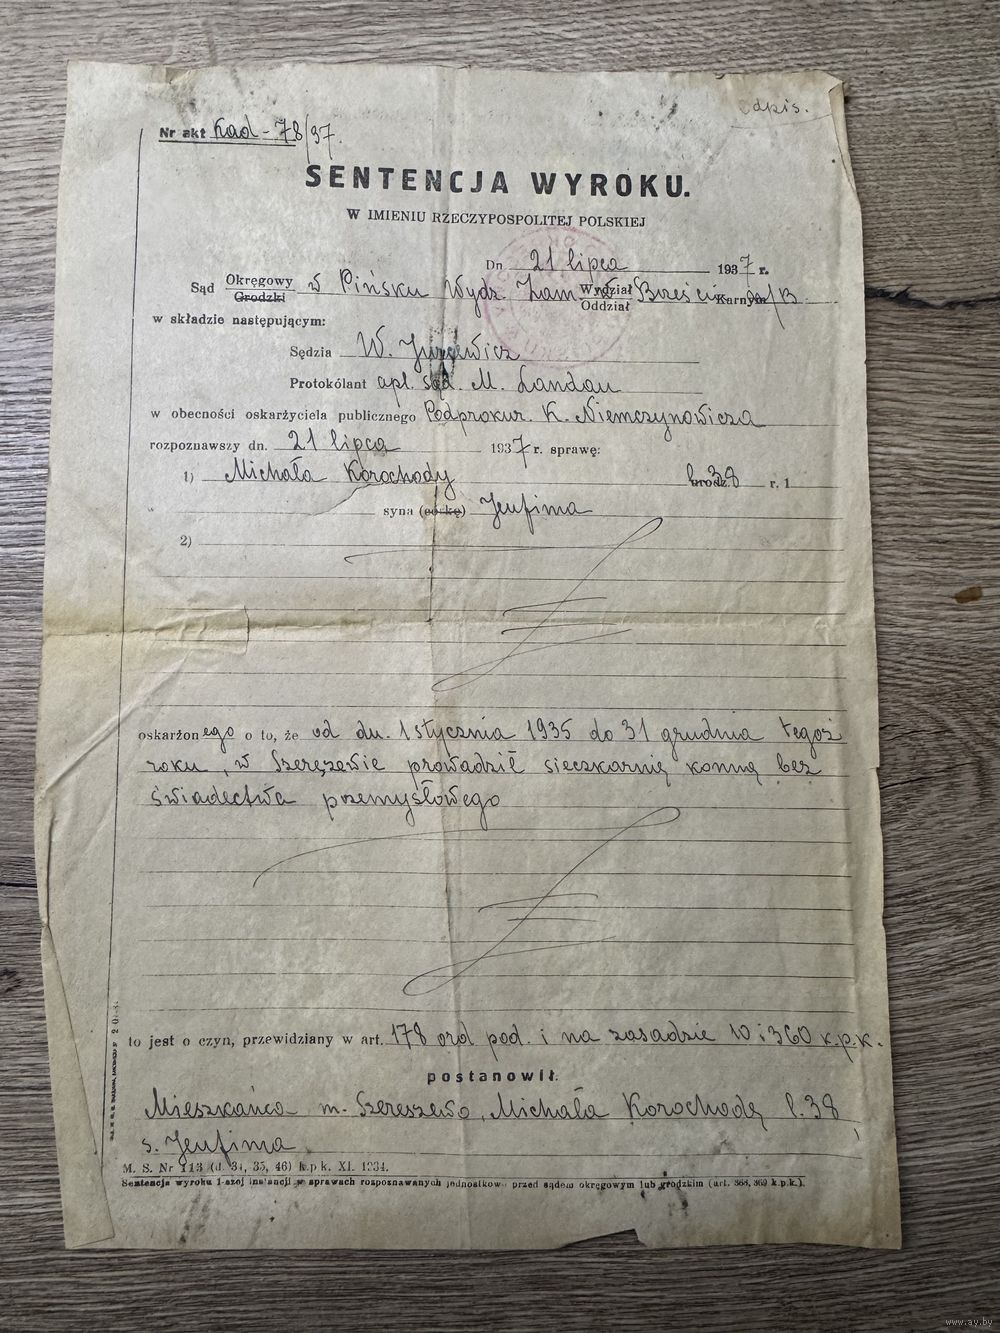 odpis.
Nr akt Kad-78/37.
SENTENCJA WYROKU.
W IMIENIU RZECZYPOSPOLITEJ POLSKIEJ
Dn 21 lipca 1937 r.
Sąd Okręgowy w Pińsku Wydz. Zam w Wydział Brześciu Karnym n/B
Grodzki Oddział
w składzie następującym:
Sędzia W. Jurgewicz
Protokólant apl. sąd. M. Landau
w obecności oskarżyciela publicznego Podprokur. K. Niemczynowicza
rozpoznawszy dn. 21 lipca 1937 r. sprawę:
1) Michała Korochody l. 38 urodz. r. 1
syna (córkę) Jeufima
2)
oskarżonego o to, że od dn. 1 stycznia 1935 do 31 grudnia tegoż
roku, w Szereszewie prowadził sieczkarnię konną bez
świadectwa przemysłowego
to jest o czyn, przewidziany w art. 178 ord pod. i na zasadzie 10 i 360 k.p.k.
postanowił.
Mieszkańca m. Szereszewo, Michała Korochodę l. 38,
s. Jeufima
M. S. Nr 113 (d. 34, 35, 46) k.p k. XI. 1934.
Sentencja wyroku 1-szej instancji w sprawach rozpoznawanych jednostkowo przed sądem okręgowym lub grodzkim (art. 368, 369 k.p.k.).
www.ay.by